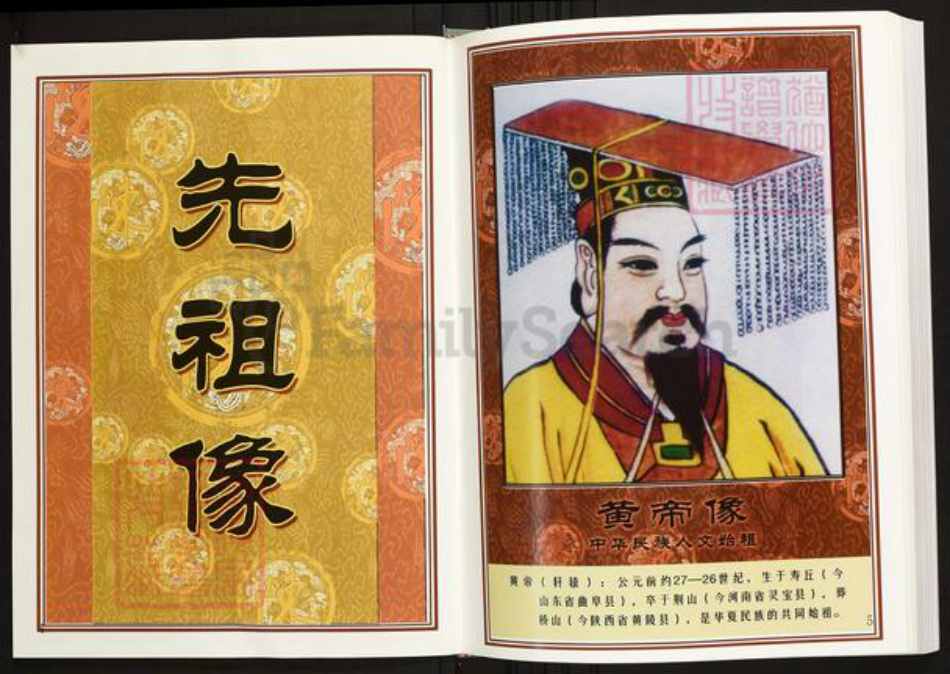 先
祖
像
FamilySearch
黄帝像
中华民族人文始祖
黄帝（轩辕）：公元前约27—26世纪，生于寿丘（今
山东省曲阜县），卒于荆山（今河南省灵宝县），葬
桥山（今陕西省黄陵县），是华夏民族的共同始祖。
5